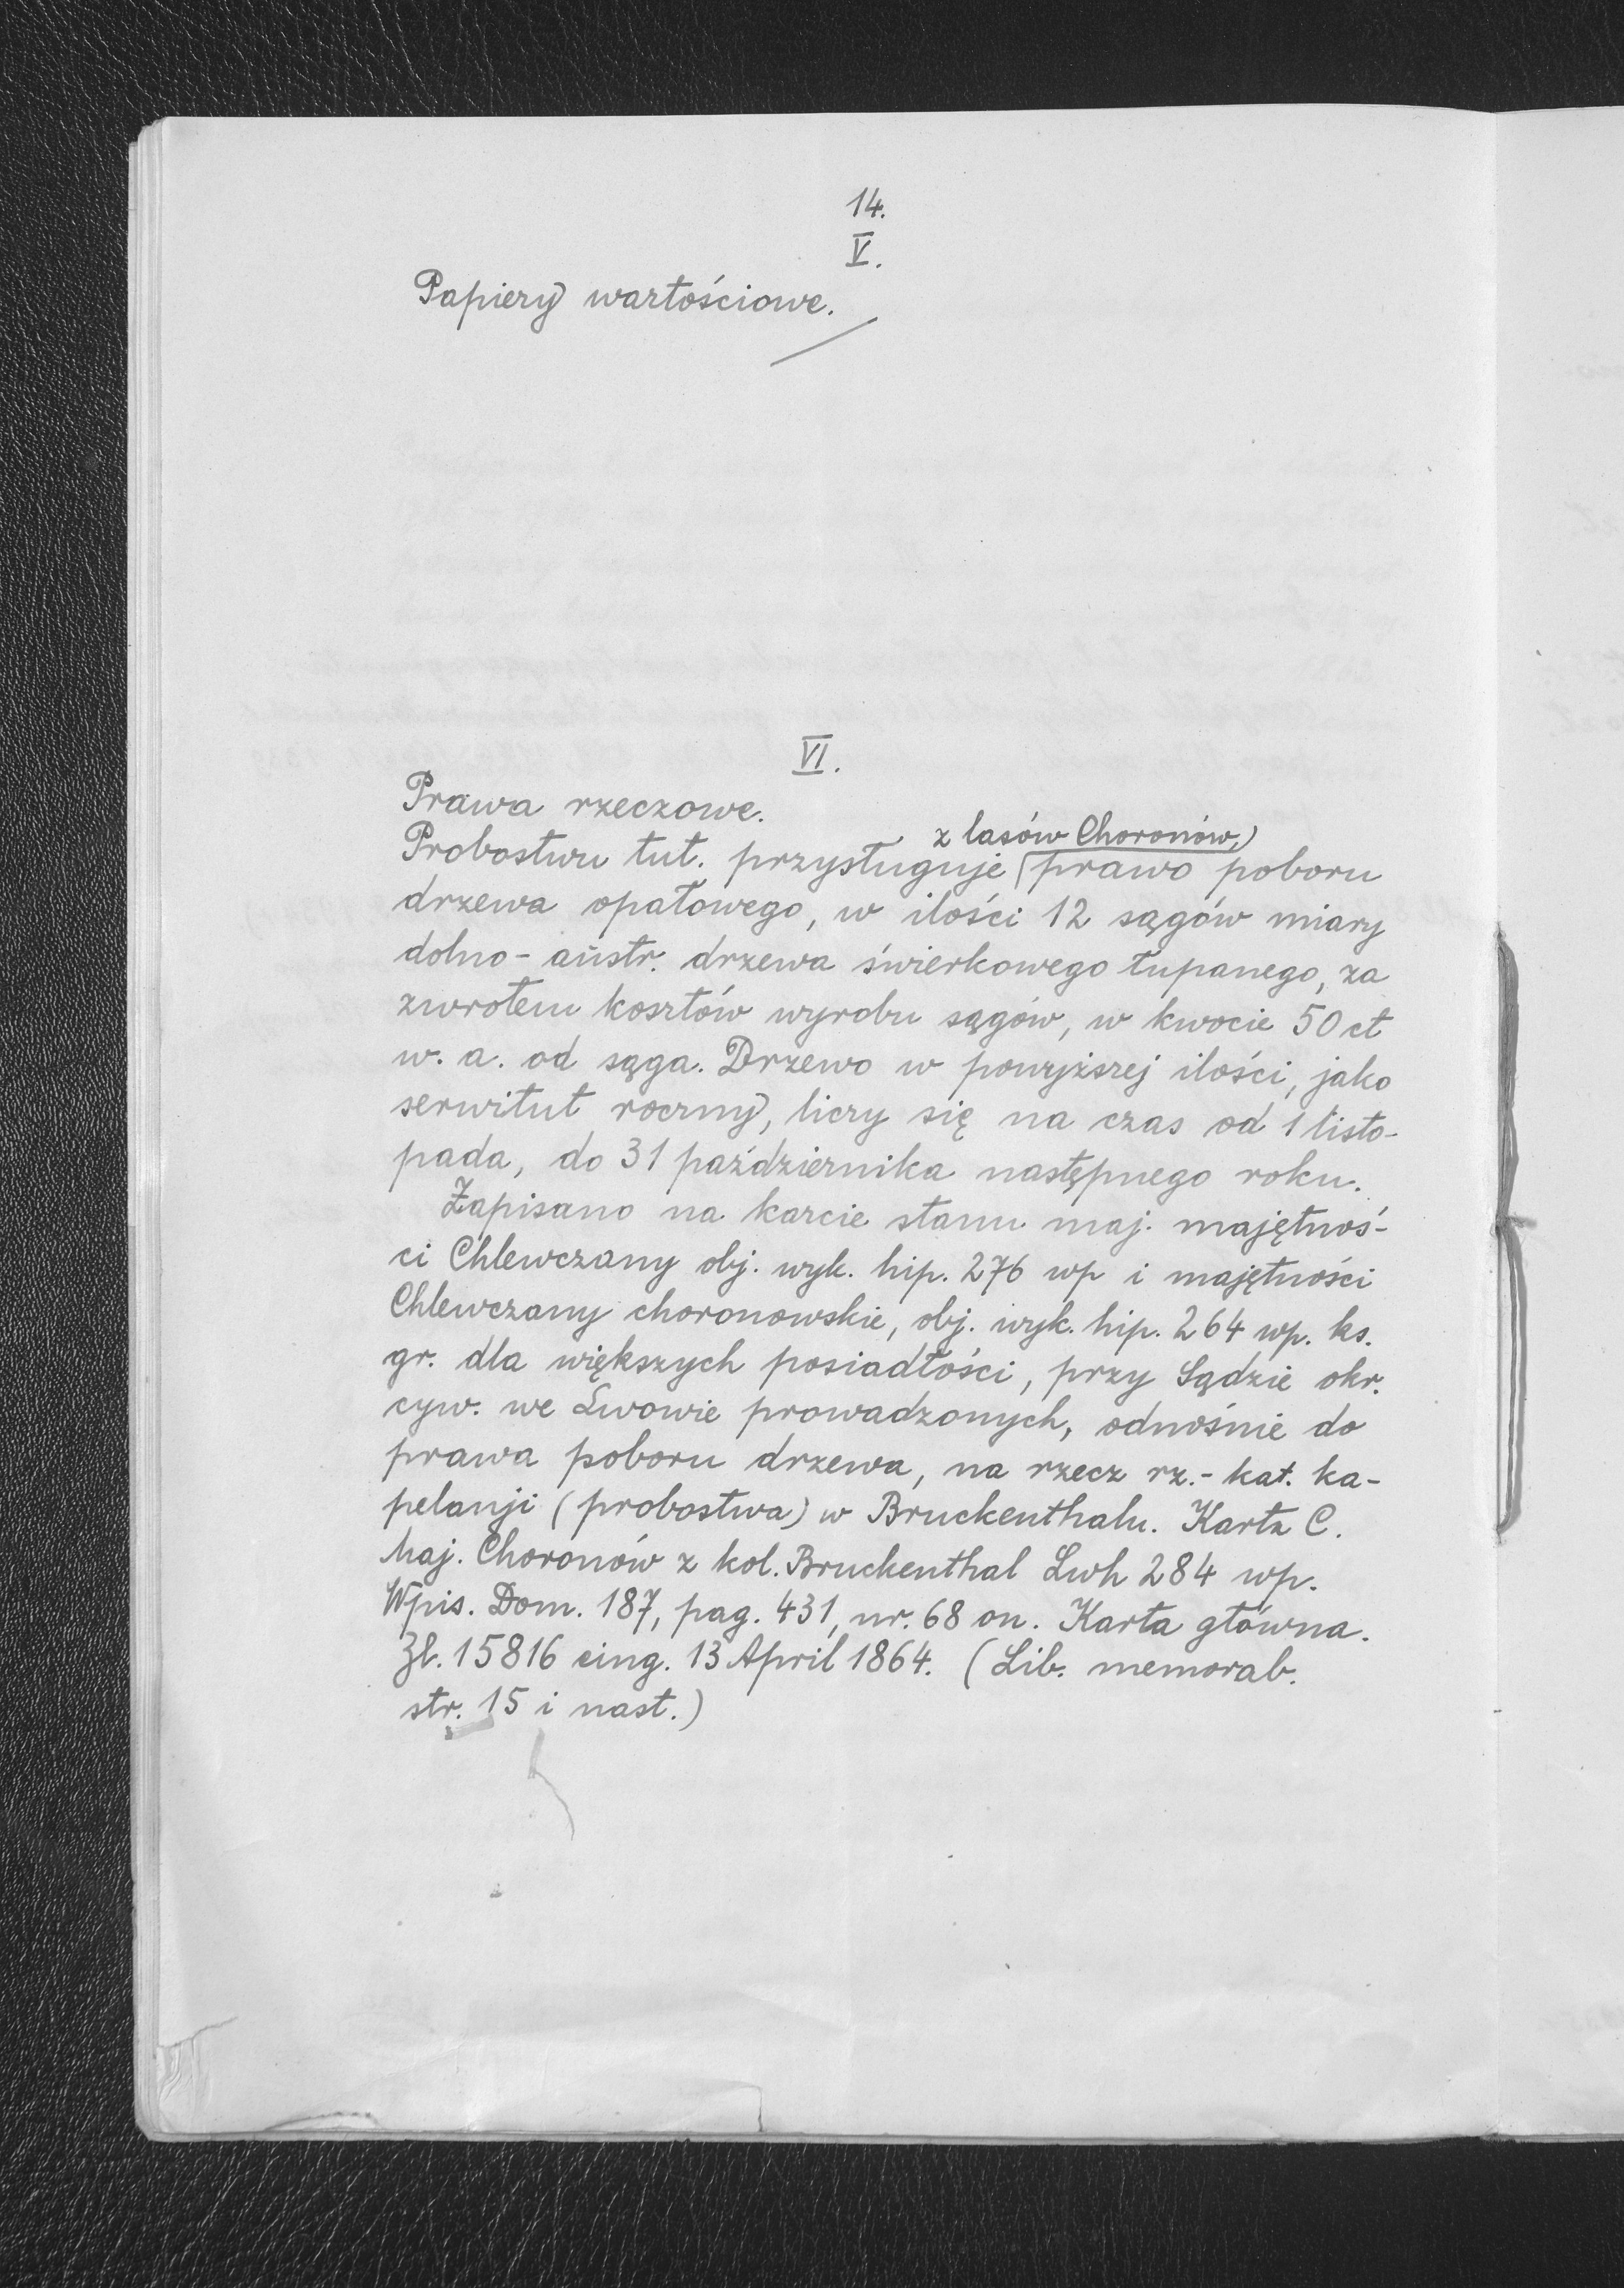 14.
V.
Papiery wartościowe.
VI.
Prawa rzeczowe.
z lasów Choronów,
Probostwu tut. przysługuje prawo poboru
drzewa opałowego, w ilości 12 sągów miary
dolno-austr. drzewa świerkowego łupanego, za
zwrotem kosztów wyrobu sągów, w kwocie 50 ct
w. a. od sąga. Drzewo w powyższej ilości, jako
serwitut roczny, liczy się na czas od 1 listo-
pada, do 31 października następnego roku.
Zapisano na karcie stanu maj. majętnoś-
ci Chlewczany obj. wyk. hip. 276 wp i majętności
Chlewczany choronowskie, obj. wyk. hip. 264 wp. ks.
gr. dla większych posiadłości, przy Sądzie okr.
cyw. we Lwowie prowadzonych, odnośnie do
prawa poboru drzewa, na rzecz rz.-kat. ka-
pelanji (probostwa) w Bruckenthalu. Karta C.
Maj. Choronów z kol. Bruckenthal Lwh 284 wp.
Wpis. Dom. 187, pag. 431, nr. 68 on. Karta główna.
Zl. 15816 eing. 13 April 1864. (Lib. memorab.
str. 15 i nast.)